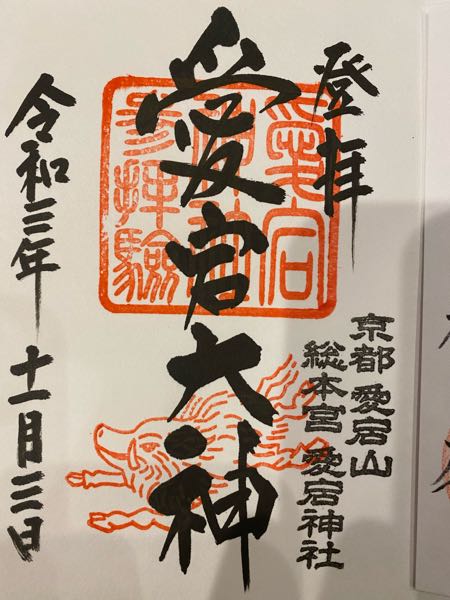 登拝
愛宕神社参拝験
愛宕大神
京都 愛宕山
総本宮 愛宕神社
令和三年 十一月三日